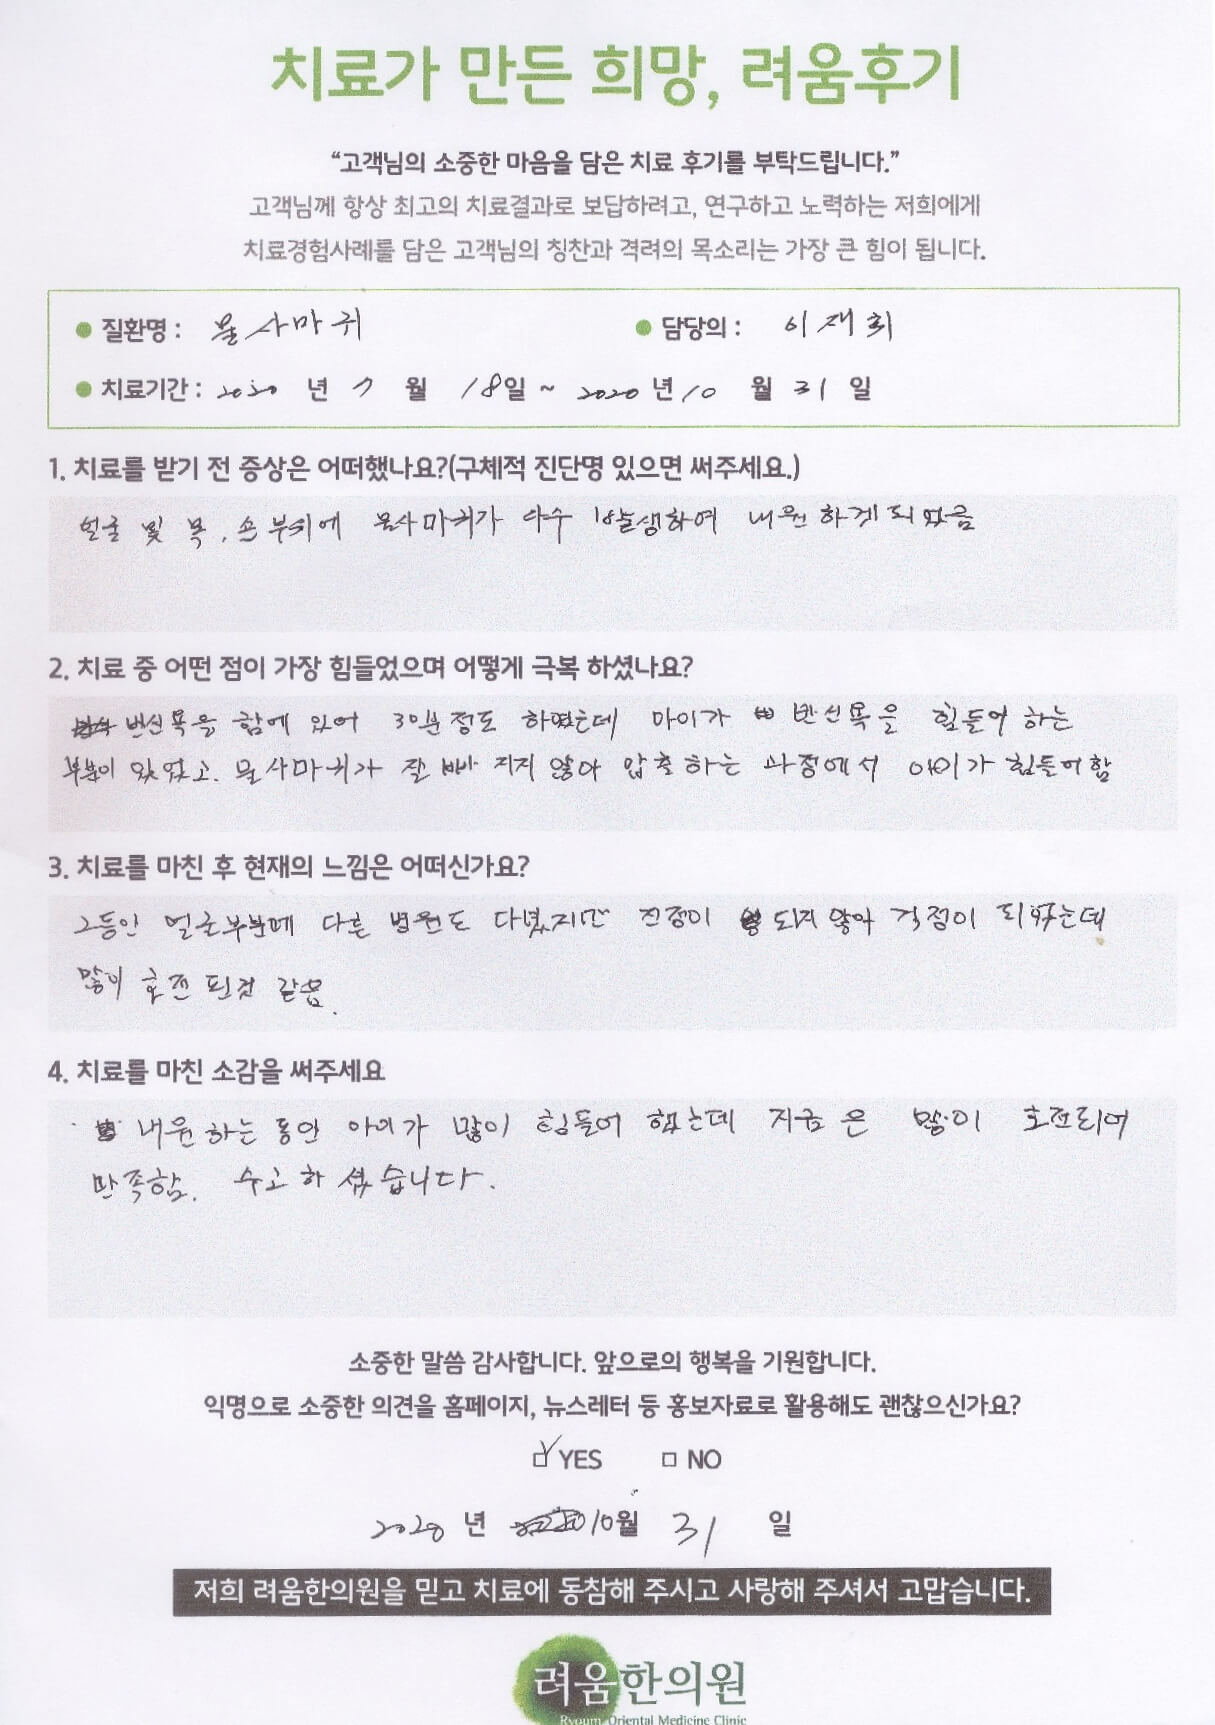 치료가 만든 희망, 려움후기
“고객님의 소중한 마음을 담은 치료 후기를 부탁드립니다.”
고객님께 항상 최고의 치료결과로 보답하려고, 연구하고 노력하는 저희에게
치료경험사례를 담은 고객님의 칭찬과 격려의 목소리는 가장 큰 힘이 됩니다.
● 질환명 : 물사마귀 ● 담당의 : 이재희
● 치료기간 : 2020 년 7 월 18일 ~ 2020 년 10 월 31 일
1. 치료를 받기 전 증상은 어떠했나요?(구체적 진단명 있으면 써주세요.)
얼굴 및 목, 손 부위에 물사마귀가 다수 발생하여 내원하게되었음
2. 치료 중 어떤 점이 가장 힘들었으며 어떻게 극복 하셨나요?
반신욕을 함에 있어 30분정도 하였는데 아이가 반신욕을 힘들어 하는
부분이 있었고. 물사마귀가 잘 빠지지 않아 압출하는 과정에서 아이가 힘들어함
3. 치료를 마친 후 현재의 느낌은 어떠신가요?
그동안 얼굴부분에 다른 병원도 다녔지만 진정이 되지 않아 걱정이 되었는데
많이 호전 된것 같음.
4. 치료를 마친 소감을 써주세요
내원하는 동안 아이가 많이 힘들어 했는데 지금은 많이 호전되어
만족함. 수고하셨습니다.
소중한 말씀 감사합니다. 앞으로의 행복을 기원합니다.
익명으로 소중한 의견을 홈페이지, 뉴스레터 등 홍보자료로 활용해도 괜찮으신가요?
☑ YES □ NO
2020 년 10월 31 일
저희 려움한의원을 믿고 치료에 동참해 주시고 사랑해 주셔서 고맙습니다.
려움한의원
Ryoum Oriental Medicine Clinic